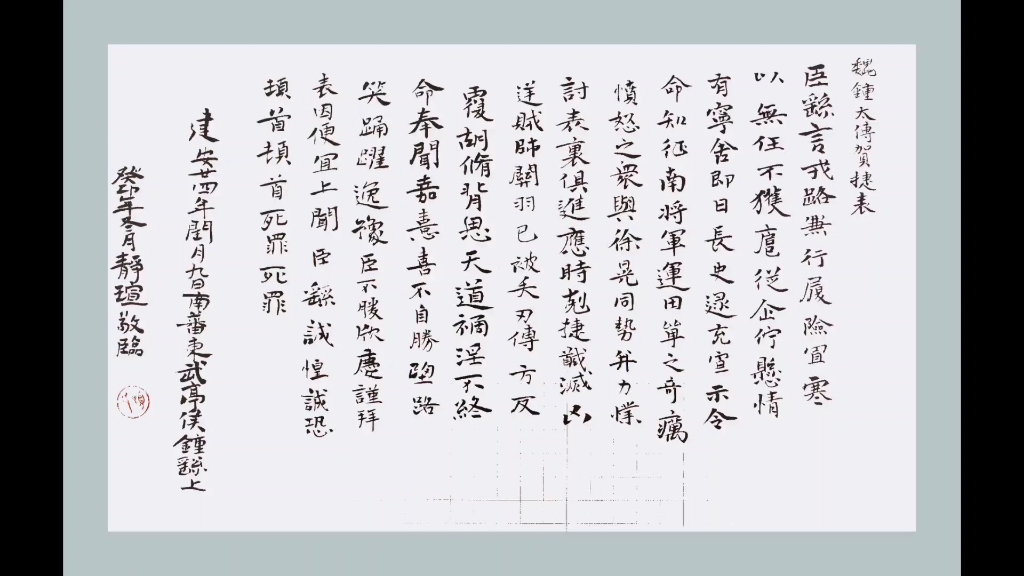 魏鍾太傅賀捷表
臣繇言戎路無行履險冒寒
以無任不獲扈從企佇懸情
有寧舍即日長史逯充宣示令
命知征南將軍運田單之奇癘
憤怒之衆與徐晃同勢并力㩧
討表裏俱進應時剋捷馘滅凶
逆賊帥關羽已被矢刃傳方反
覆胡脩背恩天道禍淫不終
命奉聞嘉憙喜不自勝望路
笑踊躍逸豫臣不勝欣慶謹拜
表因便宜上聞臣繇誠惶誠恐
頓首頓首死罪死罪
建安廿四年閏月九日南蕃東武亭侯鍾繇上
癸卯年冬月靜瑄敬臨